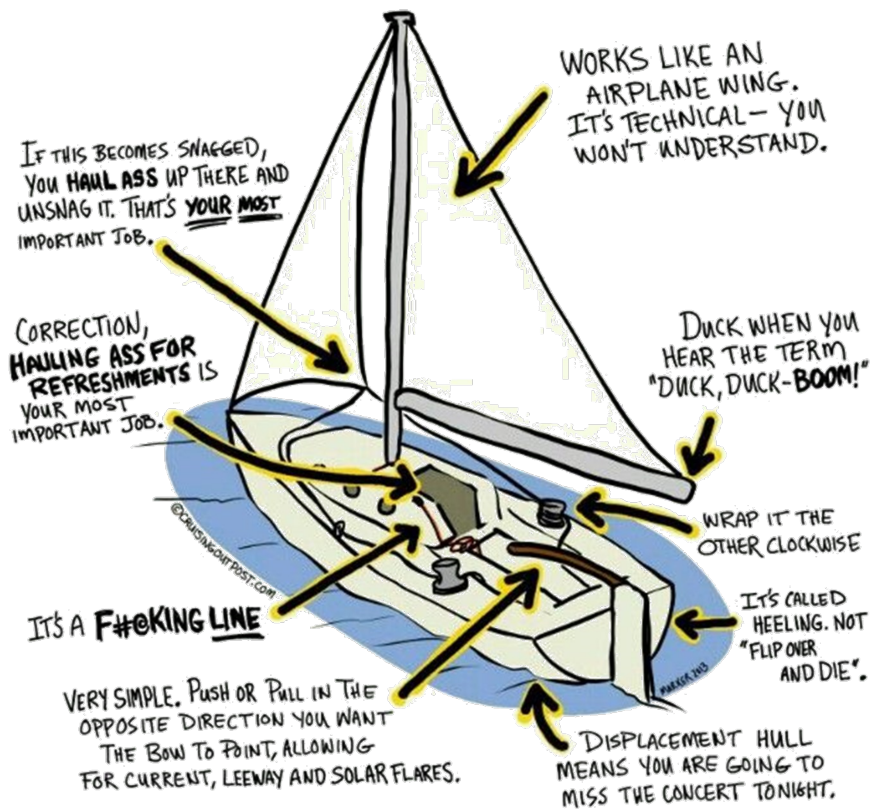 WORKS LIKE AN
AIRPLANE WING.
IT'S TECHNICAL— YOU
WON'T UNDERSTAND.
IF THIS BECOMES SNAGGED,
YOU HAUL ASS UP THERE AND
UNSNAG IT. THAT'S YOUR MOST
IMPORTANT JOB.
CORRECTION,
HAULING ASS FOR
REFRESHMENTS IS
YOUR MOST
IMPORTANT JOB.
DUCK WHEN YOU
HEAR THE TERM
"DUCK, DUCK-BOOM!"
WRAP IT THE
OTHER CLOCKWISE
©CRUISINGOUTPOST.COM
IT'S A F#@KING LINE
IT'S CALLED
HEELING. NOT
"FLIP OVER
AND DIE".
MARKER 2013
VERY SIMPLE. PUSH OR PULL IN THE
OPPOSITE DIRECTION YOU WANT
THE BOW TO POINT, ALLOWING
FOR CURRENT, LEEWAY AND SOLAR FLARES.
DISPLACEMENT HULL
MEANS YOU ARE GOING TO
MISS THE CONCERT TONIGHT.